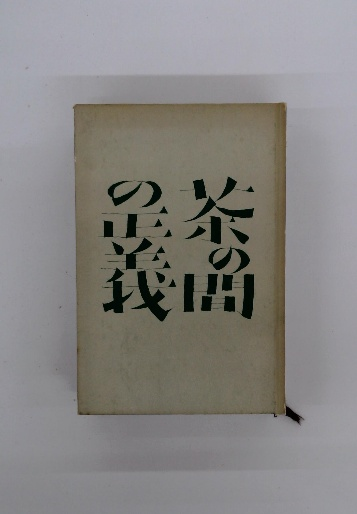 茶の間
の正義